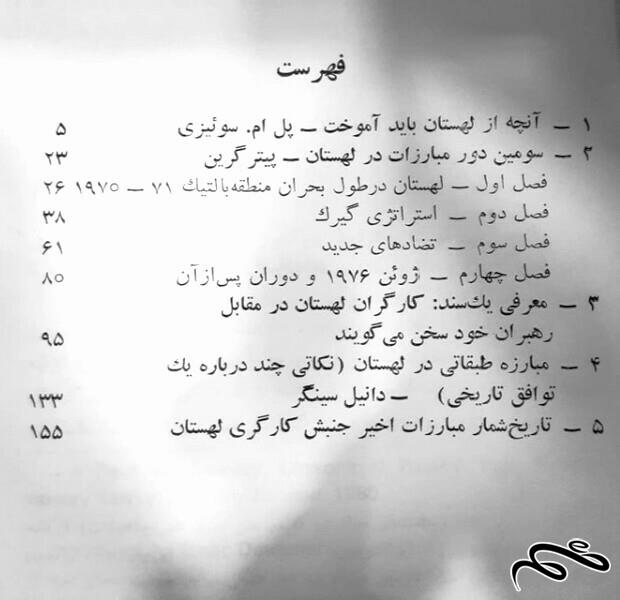 فهرست
۱ ــ آنچه از لهستان باید آموخت ــ پل ام. سوئیزی ۵
۲ ــ سومین دور مبارزات در لهستان ــ پیتر گرین ۲۳
فصل اول ــ لهستان در طول بحران منطقه بالتیك ۷۱ ــ ۱۹۷۰ ۲۶
فصل دوم ــ استراتژی گیرك ۳۸
فصل سوم ــ تضادهای جدید ۶۱
فصل چهارم ــ ژوئن ۱۹۷۶ و دوران پس‌از‌آن ۸۰
۳ ــ معرفی یك‌سند: کارگران لهستان در مقابل
رهبران خود سخن می‌گویند ۹۵
۴ ــ مبارزه طبقاتی در لهستان (نکاتی چند درباره یك
توافق تاریخی) ــ دانیل سینگر ۱۳۳
۵ ــ تاریخ‌شمار مبارزات اخیر جنبش کارگری لهستان ۱۵۵